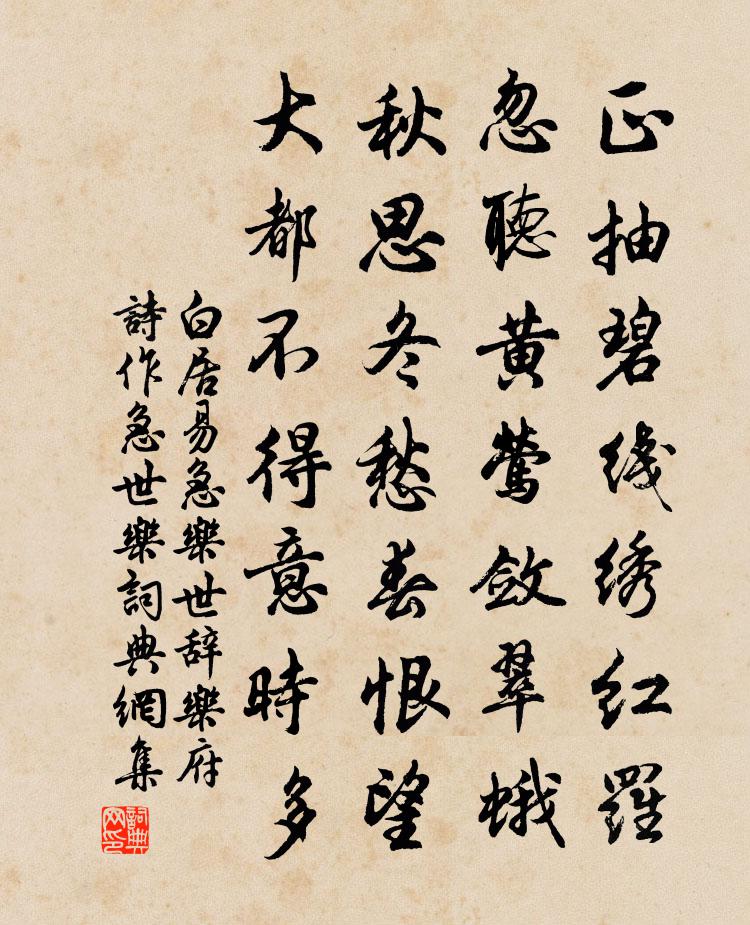 正抽碧线绣红羅
忽聴黄莺斂翠蛾
秋思冬愁春恨望
大都不得意時多
白居易急樂世辞樂府
詩作急世樂詞典網集
詞典网印